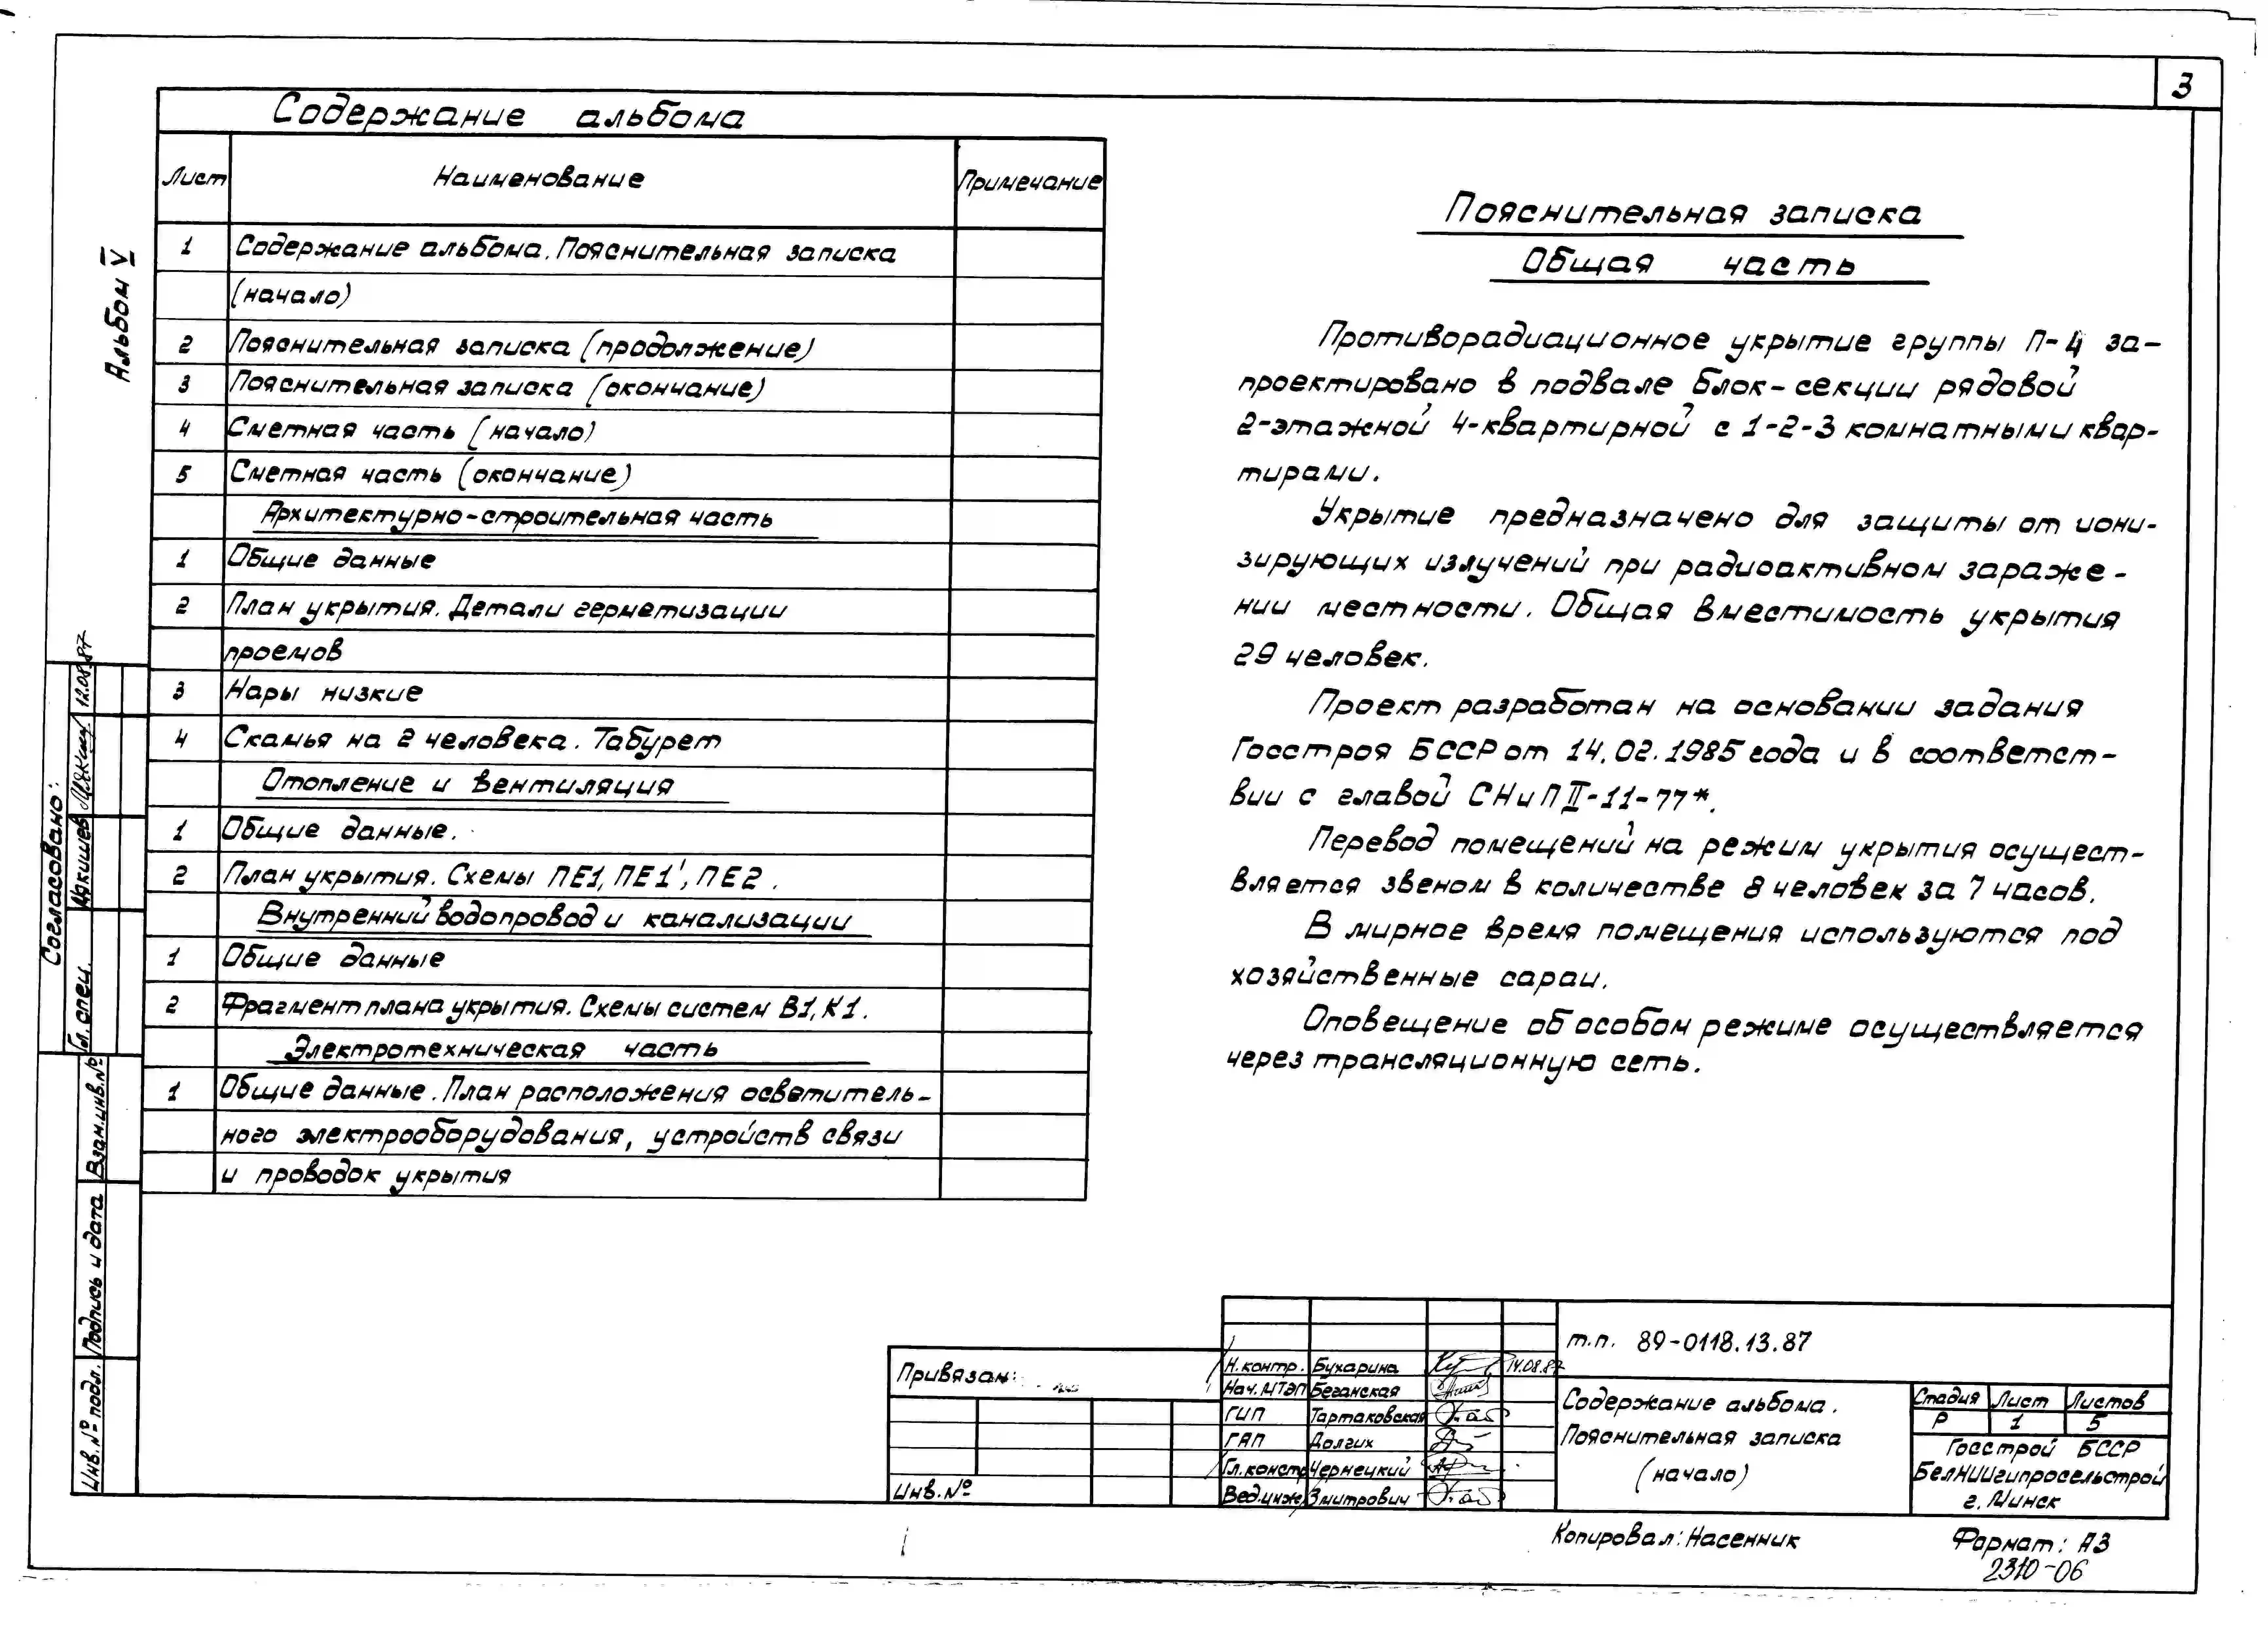 3
Содержание альбома
Лист Наименование Примечание
1 Содержание альбома. Пояснительная записка
(начало)
2 Пояснительная записка (продолжение)
3 Пояснительная записка (окончание)
4 Сметная часть (начало)
5 Сметная часть (окончание)
Архитектурно-строительная часть
1 Общие данные
2 План укрытия. Детали герметизации
проемов
3 Нары низкие
4 Скамья на 2 человека. Табурет
Отопление и вентиляция
1 Общие данные.
2 План укрытия. Схемы ПЕ1, ПЕ1', ПЕ2.
Внутренний водопровод и канализации
1 Общие данные
2 Фрагмент плана укрытия. Схемы систем В1, К1.
Электротехническая часть
1 Общие данные. План расположения осветитель-
ного электрооборудования, устройств связи
и проводок укрытия
Пояснительная записка
Общая часть
Противорадиационное укрытие группы П-4 за-
проектировано в подвале блок-секции рядовой
2-этажной 4-квартирной с 1-2-3 комнатными квар-
тирами.
Укрытие предназначено для защиты от иони-
зирующих излучений при радиоактивном зараже-
нии местности. Общая вместимость укрытия
29 человек.
Проект разработан на основании задания
Госстроя БССР от 14.02.1985 года и в соответст-
вии с главой СНиП II-11-77*.
Перевод помещений на режим укрытия осущест-
вляется звеном в количестве 8 человек за 7 часов.
В мирное время помещения используются под
хозяйственные сараи.
Оповещение об особом режиме осуществляется
через трансляционную сеть.
Альбом V
Согласовано:
Гл. спец. Аркишев 12.08.87
Взам. инв. №
Подпись и дата
Инв. № подл.
Привязан:
Инв. №
Н. контр. Бухарина 14.08.87
Нач. МТЭП Беганская
ГИП Тартаковская
ГАП Долгих
Гл. констр Чернецкий
Вед. инж. Змитрович
т.п. 89-0118.13.87
Содержание альбома.
Пояснительная записка
(начало)
Стадия Лист Листов
Р 1 5
Госстрой БССР
БелНИИгипросельстрой
г. Минск
Копировал: Насенник Формат: А3
2310-06